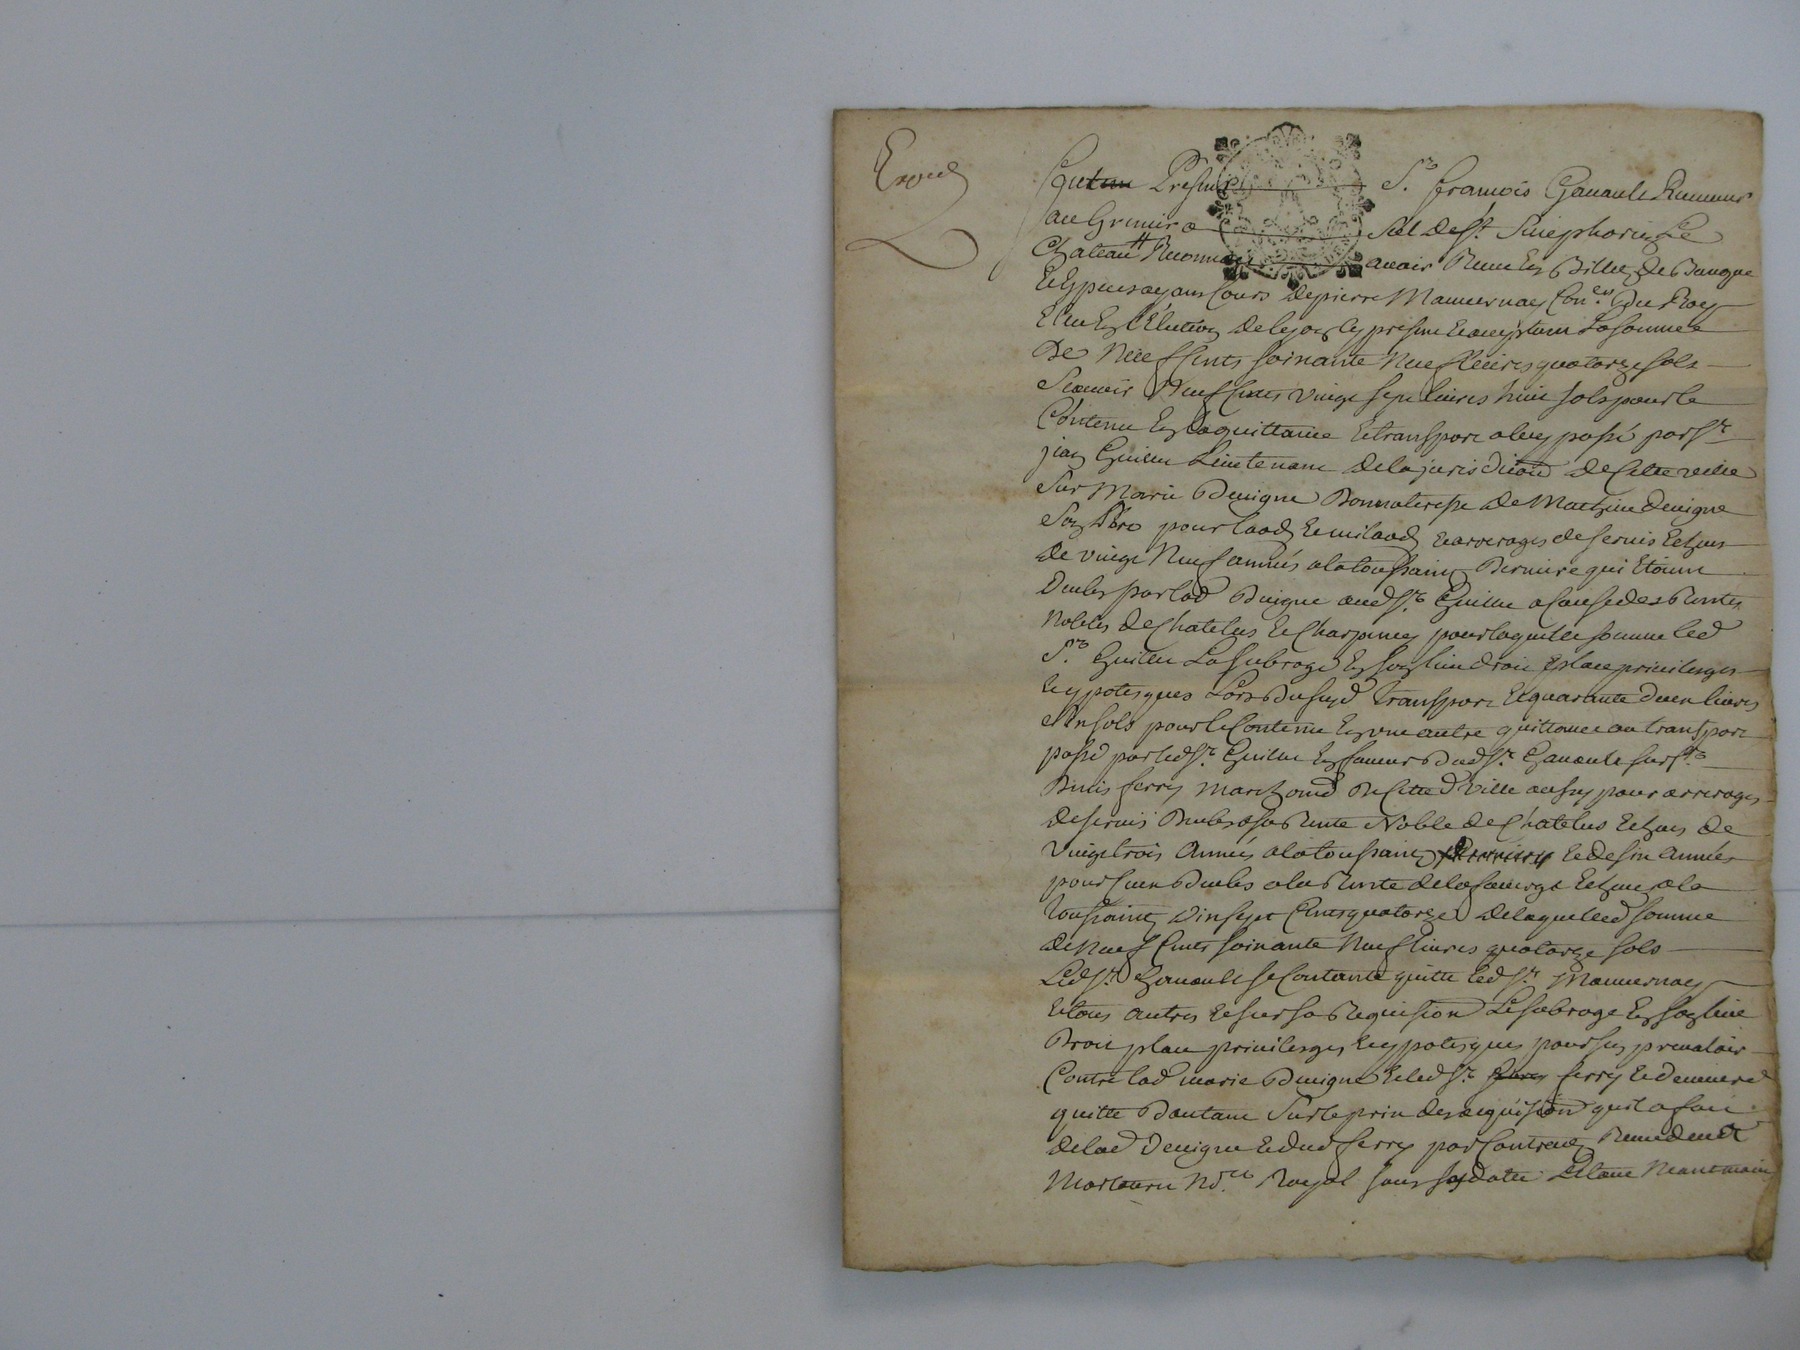 Sr. françois
au Grenier a Sel de St. Sinephorien Le
Chateau Reconnois avoir Receu En Billets de Banque
Et Especes ayans Cours de pierre Mauvernay Coner. du Roy
Eleu En l'Election de Lyon Cy present Et acceptant La somme
De Neuf Cents soixante Neuf livres quatorze sols
Scavoir Neuf Cents vingt sept livres huit sols pour le
Contenu En la quittance Et transport a luy passé par Sr.
jean Lieutenant de la jurisdiction de Cette ville
Sur Marie Benigne Donnateresse de Mathieu Benigne
Son Pere pour laods Et milaods Et arrerages de servis Echus
De vingt Neuf années a la toussaint Derniere qui Etoient
Deubs par lad Benigne aud Sr. a Cause des Rentes
Nobles de Chatelus Et pour laquelle somme led
Sr. La subrogé En son lieu droit place privileges
Et ypoteques Lors dususd transport Et quarante deux livres
sols pour le Contenu En une autre quittance ou transport
passé par led Sr. En faveur dud Sr. sur Sr.
ferry Marchand De Cetted Ville aussy pour arrerages
De servis Deubs a sa Rente Noble de Chatelus Echus de
Vingt trois Années a la toussaint Et de six Années
pour Ceux Deubs a la Rente de la Echus a la
toussaint dix sept Cents quatorze De laquelled somme
de Neuf Cents soixante Neuf livres quatorze sols
Led Sr. se Contente quitte led Sr. Mauvernay
Et tous autres Et sur sa Requisition Le subroge En son lieu
Droit place privileges Et ypoteques pour s'en prevaloir
Contre lad marie Benigne Et led Sr. ferry Et demeure
quitte Dautant Sur le prix des acquisitions quil a fait
De lad Benigne Et dud ferry par Contract
Royal sous sa datte